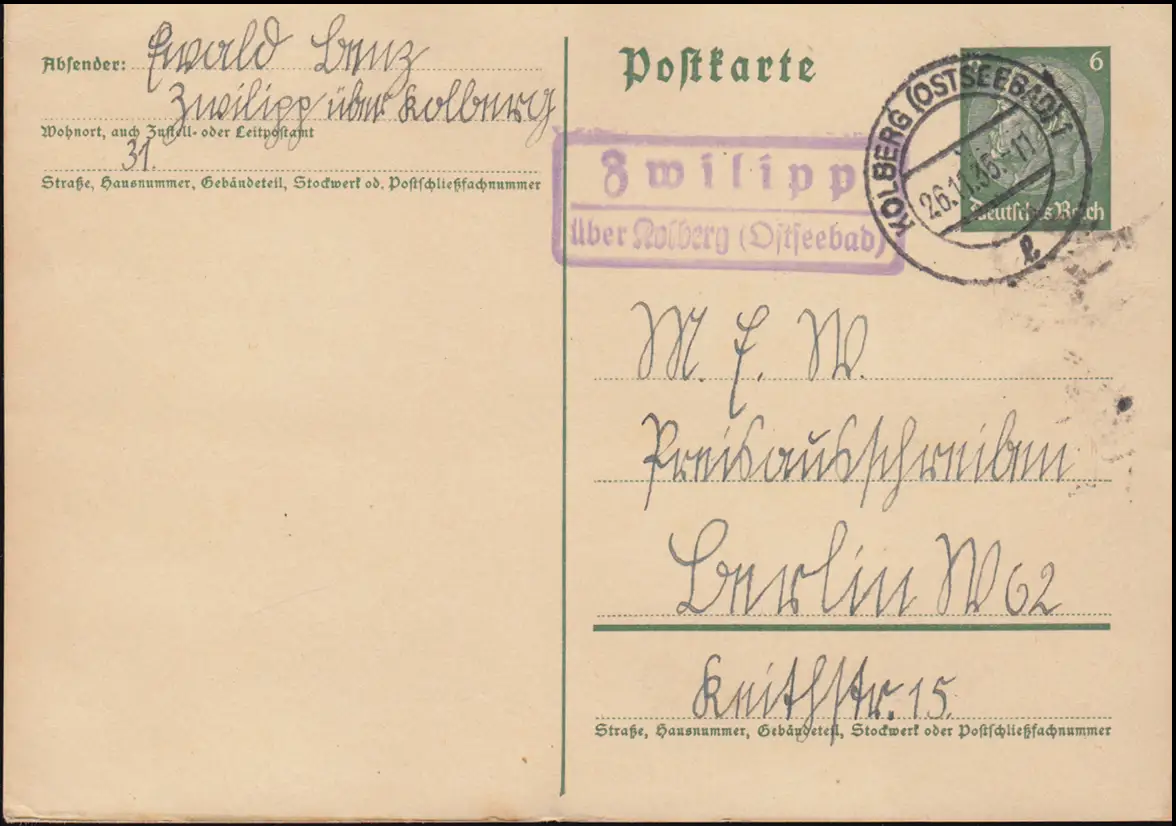 Absender: Ewald Benz
Zwilipp über Kolberg
Wohnort, auch Zustell- oder Leitpostamt
31.
Straße, Hausnummer, Gebäudeteil, Stockwerk od. Postschließfachnummer
Postkarte
6
Deutsches Reich
KOLBERG (OSTSEEBAD) 1
26.11.35.-11
Zwilipp
über Kolberg (Ostseebad)
M. E. W.
Preisausschreiben
Berlin W 62
Keithstr. 15.
Straße, Hausnummer, Gebäudeteil, Stockwerk oder Postschließfachnummer